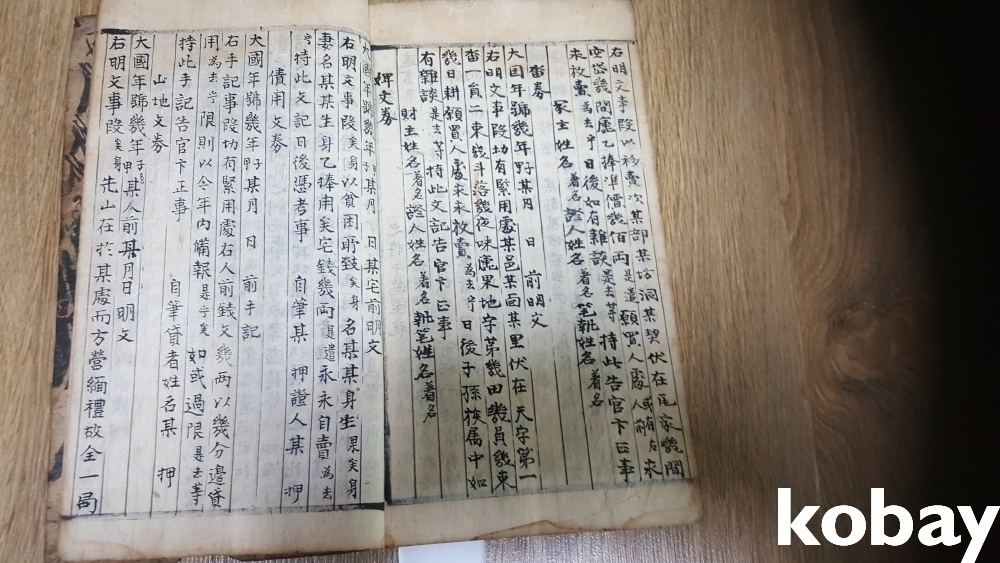 右明文事段以移賣次某部某坊洞某契伏在瓦家幾間
空垈幾間廛乙捧準價幾佰兩是遣願買人處 或有右人前 永
永放賣為去乎日後如有雜談是去等持此告官卞正事
家主姓名著名證人姓名著名筆執姓名著名
畓券
大国年號幾年 某月 日 前明文
右明文事段切有緊用處某邑某面某里伏在天字第一
畓一負二束幾斗落幾夜味廛果地字第幾田幾員幾束
幾日耕願買人處永永放賣為去乎日後子孫族属中如
有雜談是去等持此文記告官卞正事
財主姓名著名證人姓名著名執筆姓名著名
婢文券
大國年號幾年 某月 日某宅前明文
右明文事段矣身以貧困所致矣身名某某身生果矣身
妻名某某生身乙捧用矣宅錢幾兩是遣永永自賣為去
乎持此文記日後憑考事 自筆某 押證人某 押
債用文券
大國年號幾年 某月 日 前手記
右手記事段切有緊用處右人前錢文幾兩以幾分邊貸
用為去乎限則以今年內備報是乎矣如或過限是去等
持此手記告官卞正事 自筆貸者姓名某 押
山地文券
大國年號幾年 某人前某月日明文
右明文事段矣身先山在於某處而方營緬禮故全一局
kobay